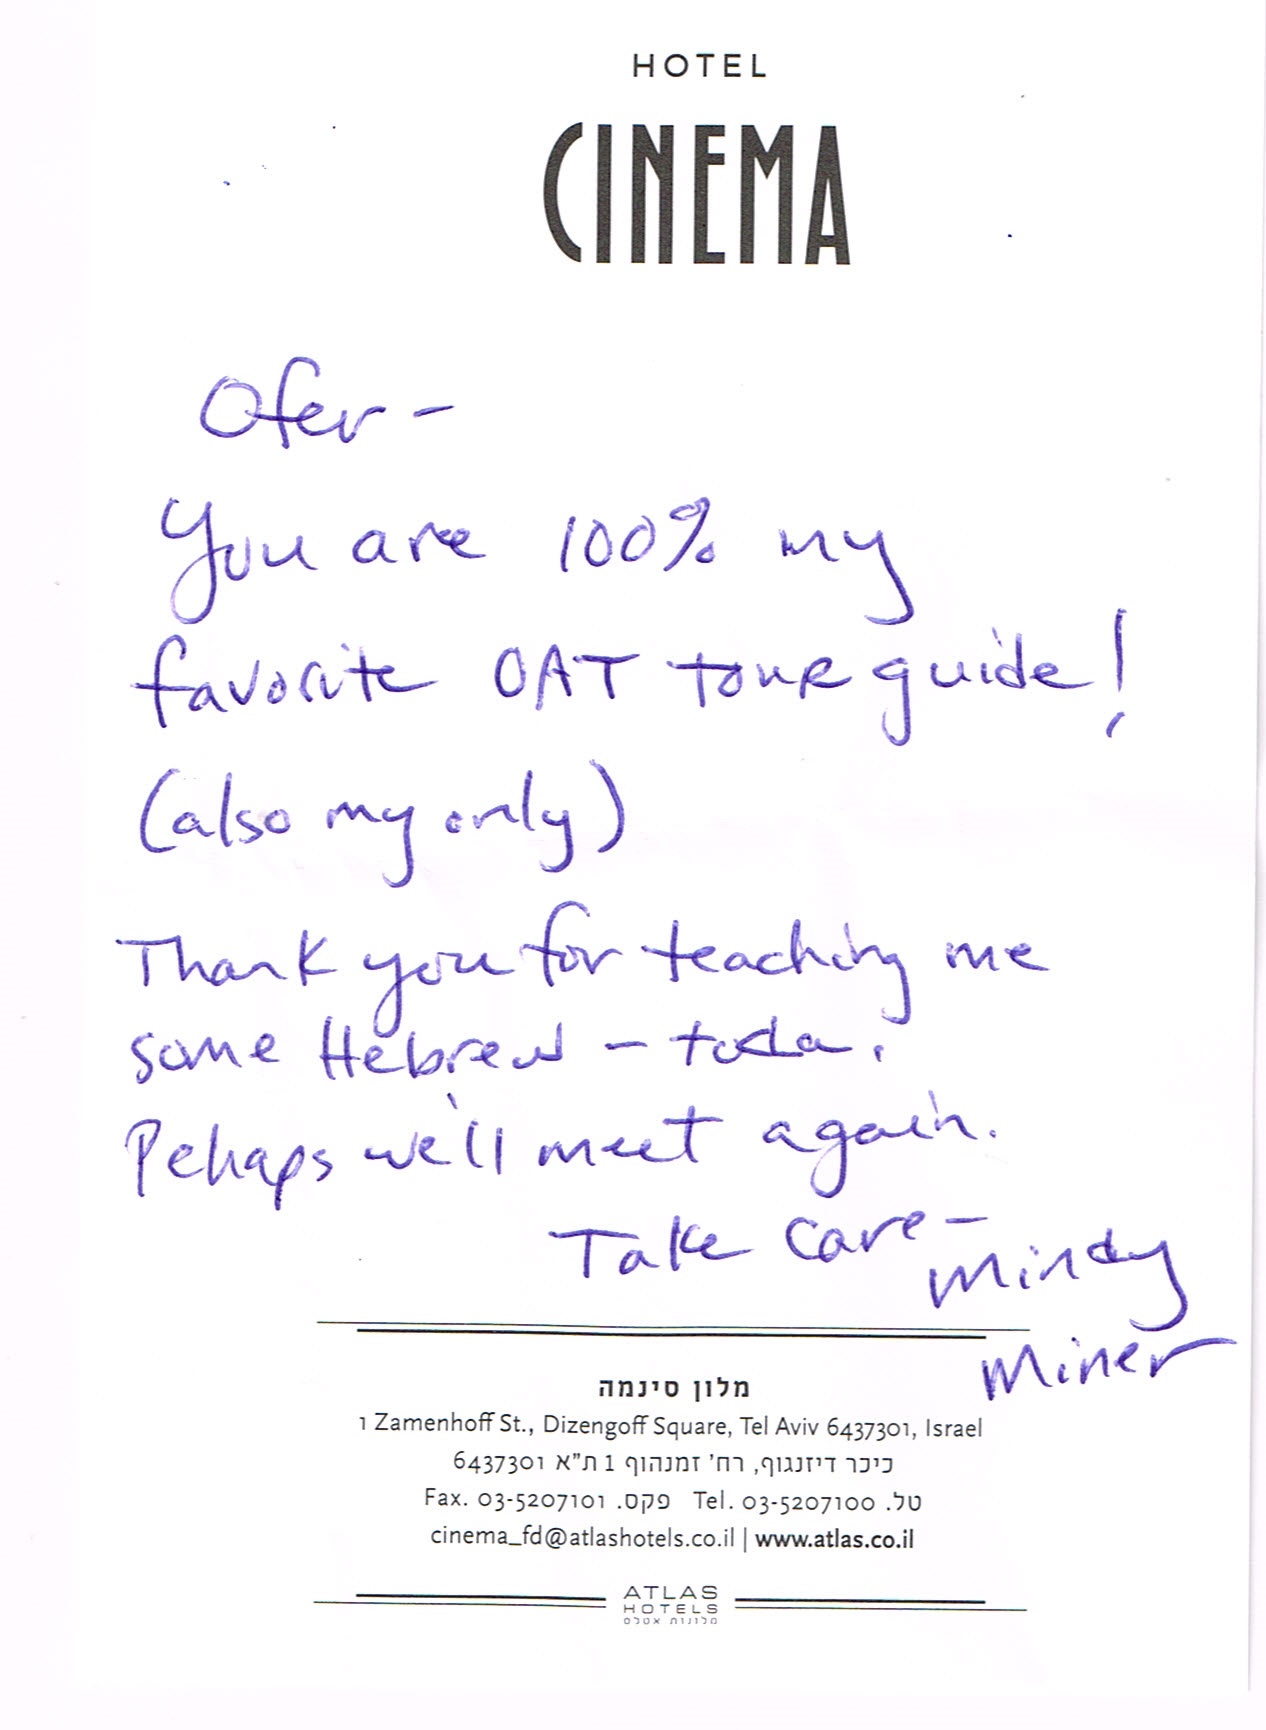 HOTEL
CINEMA
Ofer -
You are 100% my
favorite OAT tour guide!
(also my only)
Thank you for teaching me
some Hebrew - toda.
Pehaps we'll meet again.
Take care -
Mindy
Miner
מלון סינמה
1 Zamenhoff St., Dizengoff Square, Tel Aviv 6437301, Israel
כיכר דיזנגוף, רח' זמנהוף 1 ת"א 6437301
Fax. 03-5207101 .פקס Tel. 03-5207100 .טל
cinema_fd@atlashotels.co.il | www.atlas.co.il
ATLAS
HOTELS
מלונות אטלס